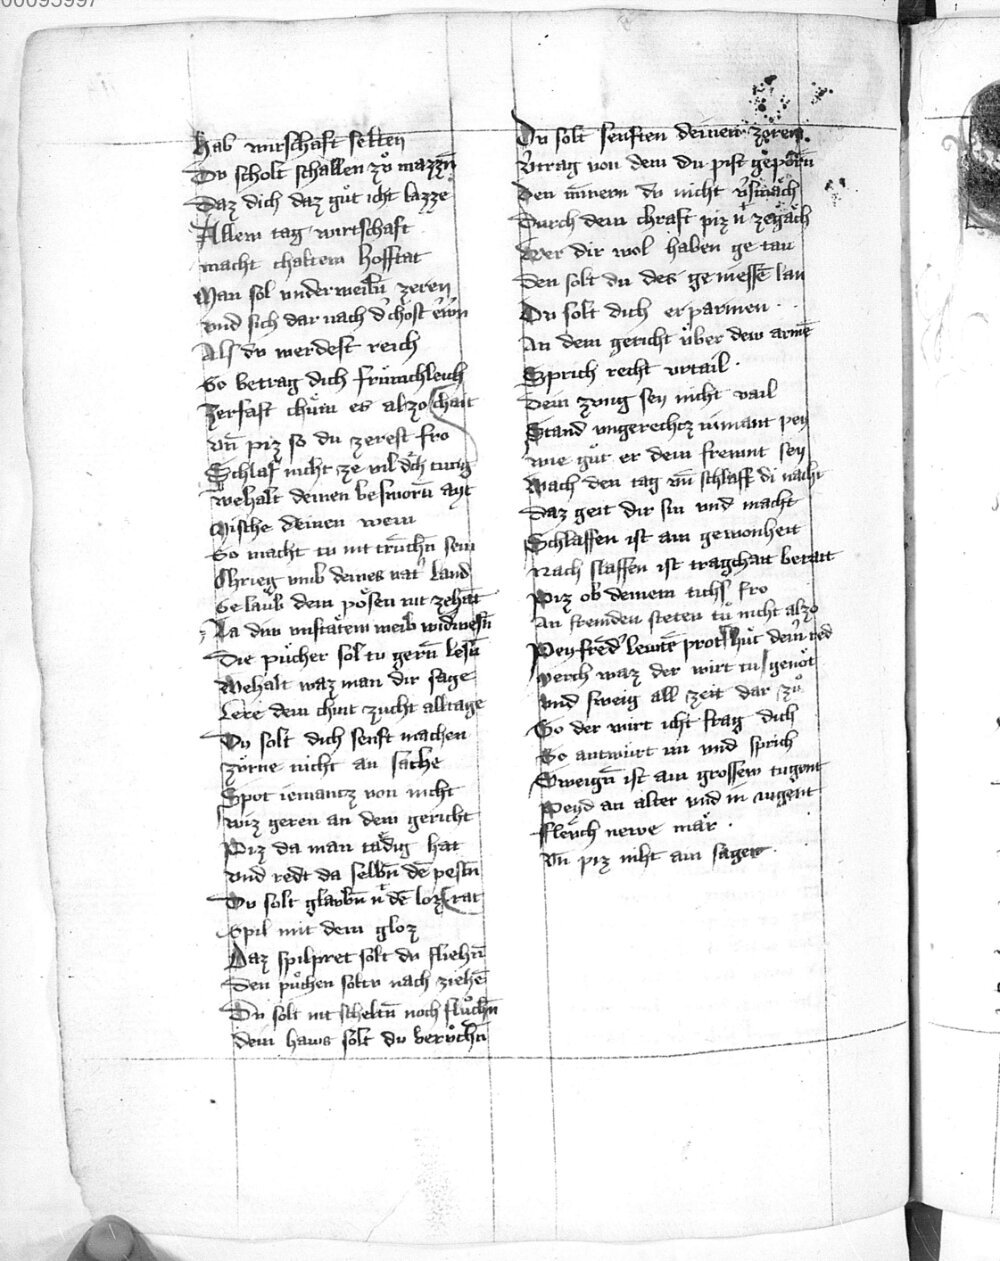 00095997
Hab wirschaft selten
Du scholt schallen zů mazzñ
Daz dich daz gůt icht lazze
Allew tag wirtschaft
macht chaltew hofftat
Man sol underweilñ zeren
vnd sich dar nach
Als du werdest reich
So betrag dich frümchleich
Zerfast chüm es alzo schant
vñ piz so du zerest fro
Schlaf nicht ze vil
Wehalt deinen besworñ ayt
Mische deinen wein
So macht tu nit trůchñ sein
Chrieg vmb deines vat' land
Gelaub dem pösen nit zehant
La dein vnstätem weib
Die půcher sol tu gerñ lesñ
Wehalt waz man dir sage
Lere dein chint zucht alltage
Du solt dich senft machen
zörne nicht an sache
Spot iemantz von nicht
wiz geren an dem gericht
Piz da man tädig hat
vnd redt da selbñ dē pestñ
Du solt glaubñ dē rat
Spil mit dem gloz
Daz spilpret solt du fliehñ
Den půchen soltu nach ziehē
Du solt nit scheltñ noch flůchñ
dein haws solt du berůchñ
Du solt senften deinen zoren
V'trag von dem du pist geporñ
Den minern du nicht v'smäch
Durch dein chraft piz zegäch
Wer dir wol haben ge tan
den solt du des geniessē lan
Du solt dich erparmen
An dem gericht über dew armē
Sprich recht vrtail
dein zung sey nicht vail
Stand vngerechtz nimant pey
wie gůt er dein frewnt sey
Wach den tag vñ schlaff di nacht
Daz geit dir sin vnd macht
Schlaffen ist ain gewonheit
Nach slaffen ist tragchait berait
Piz ob deinem tichs fro
An fremden steten tů nicht alzo
Pey fredē lewtē hüt dein'
verch waz der wirt tu
vnd sweig all zeit dar zů
So der wirt icht frag dich
So antwürt im vnd sprich
Sweigñ ist ain grossew tugent
Peyd an alter vnd in iugent
Flewch newe mär
vñ piz niht ain sager